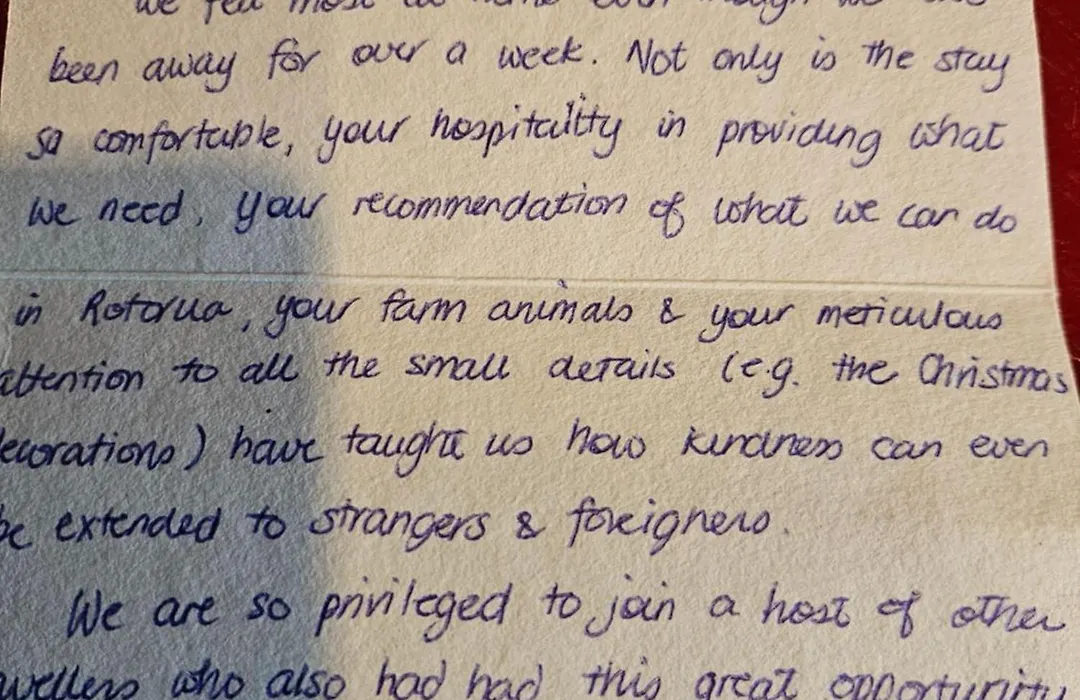 we felt most at home even though we
been away for over a week. Not only is the stay
so comfortable, your hospitality in providing what
we need, your recommendation of what we can do
in Rotorua, your farm animals & your meticulous
attention to all the small details (e.g. the Christmas
decorations) have taught us how kindness can even
be extended to strangers & foreigners.
We are so privileged to join a host of other
who also had had this great opportunity